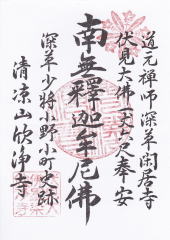 道元禅師深草閑居寺
伏見大佛丈六尺奉安
南無釋迦牟尼佛
深草少将小野小町史跡
清涼山欣浄寺